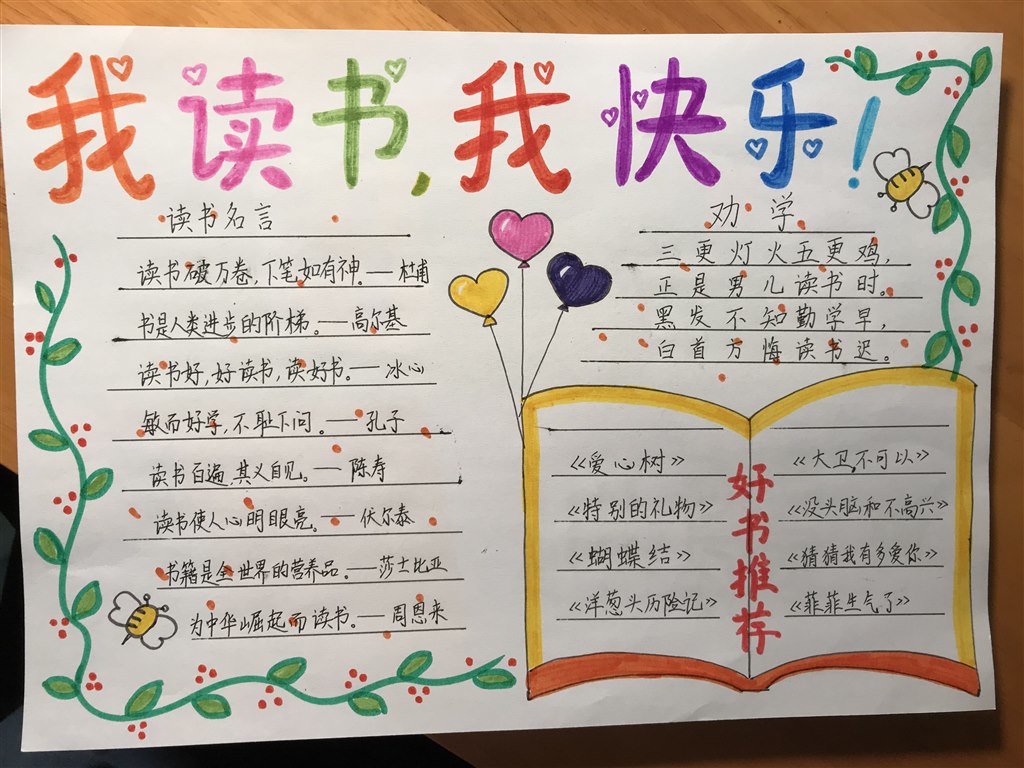 我读书,我快乐!
读书名言
读书破万卷,下笔如有神。— 杜甫
书是人类进步的阶梯。— 高尔基
读书好,好读书,读好书。— 冰心
敏而好学,不耻下问。— 孔子
读书百遍,其义自见。— 陈寿
读书使人心明眼亮。— 伏尔泰
书籍是全世界的营养品。—莎士比亚
为中华崛起而读书。— 周恩来
劝学
三更灯火五更鸡,
正是男儿读书时。
黑发不知勤学早,
白首方悔读书迟。
好书推荐
《爱心树》
《特别的礼物》
《蝴蝶结》
《洋葱头历险记》
《大卫,不可以》
《没头脑和不高兴》
《猜猜我有多爱你》
《菲菲生气了》